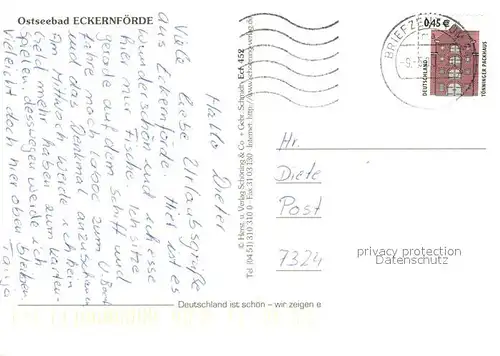 Ostseebad ECKERNFÖRDE
Hallo Dieter
Viele liebe Urlaubsgrüße
aus Eckernförde. Hier ist es
wunderschön und ich esse
hier nur Fische. Ich sitze
gerade auf dem Schiff und
fahre nach Laboe zum U-Boot
und das Denkmal anzuschauen.
Am Mittwoch werde ich kein
Geld mehr haben zum Karten-
spielen, desswegen werde ich
vielleicht doch hier oben bleiben.
Tanja
© Herst. u. Verlag Schöning & Co + Gebr. Schmidt, Ecf 452
Tel. (0451) 310 310 Fax 31 03 130 Internet http://www.schoening-verlag.de
BRIEFZE
0,45 €
DEUTSCHLAND
TÖNNINGER PACKHAUS
Hr.
Diete
Post
7324
privacy protection
Datenschutz
Deutschland ist schön – wir zeigen e